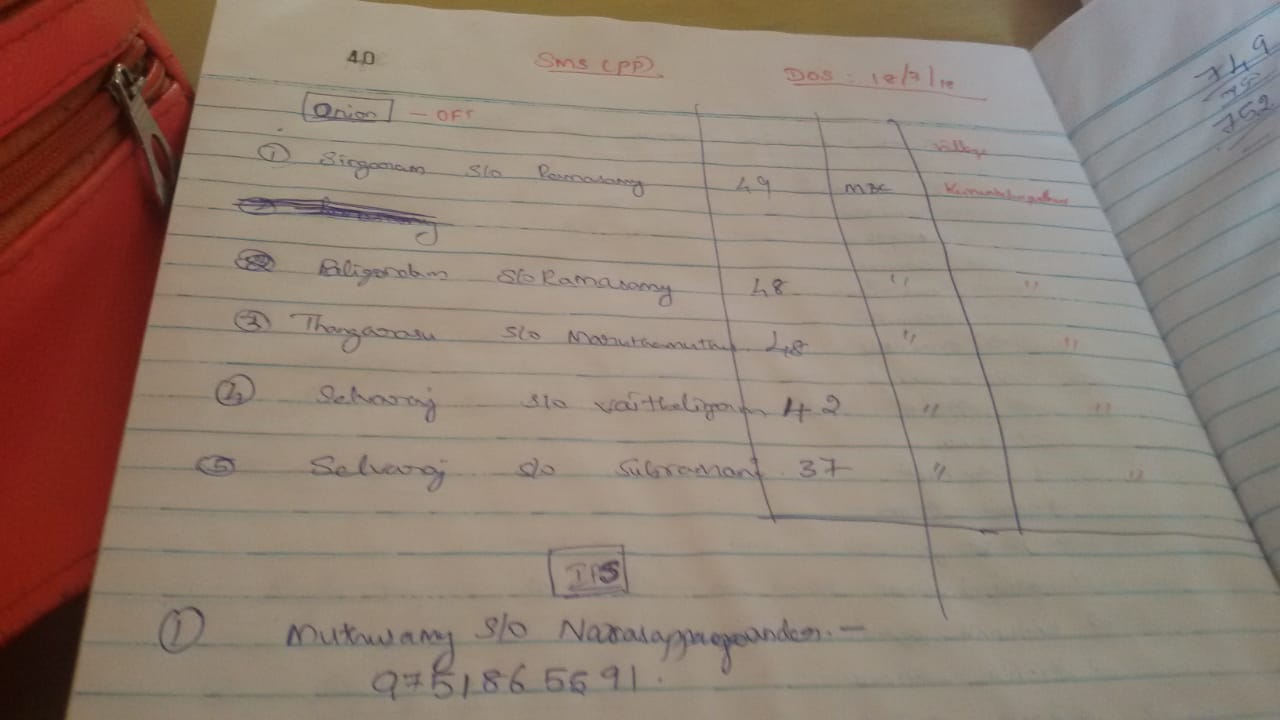 40 SMS (PP). DOS : 18/7/18
Onion - OFT
Village
① Singaram S/o Ramasamy 49 MBC
② Paligandam S/o Ramasamy 48 " "
③ Thangarasu S/o Maruthamuthu 48 " "
④ Selvaraj S/o Vaithelingam 42 " "
⑤ Selvaraj S/o Subramani 37 " "
① Muthusamy S/o Narasappagounden. -
9751865591.
749
752